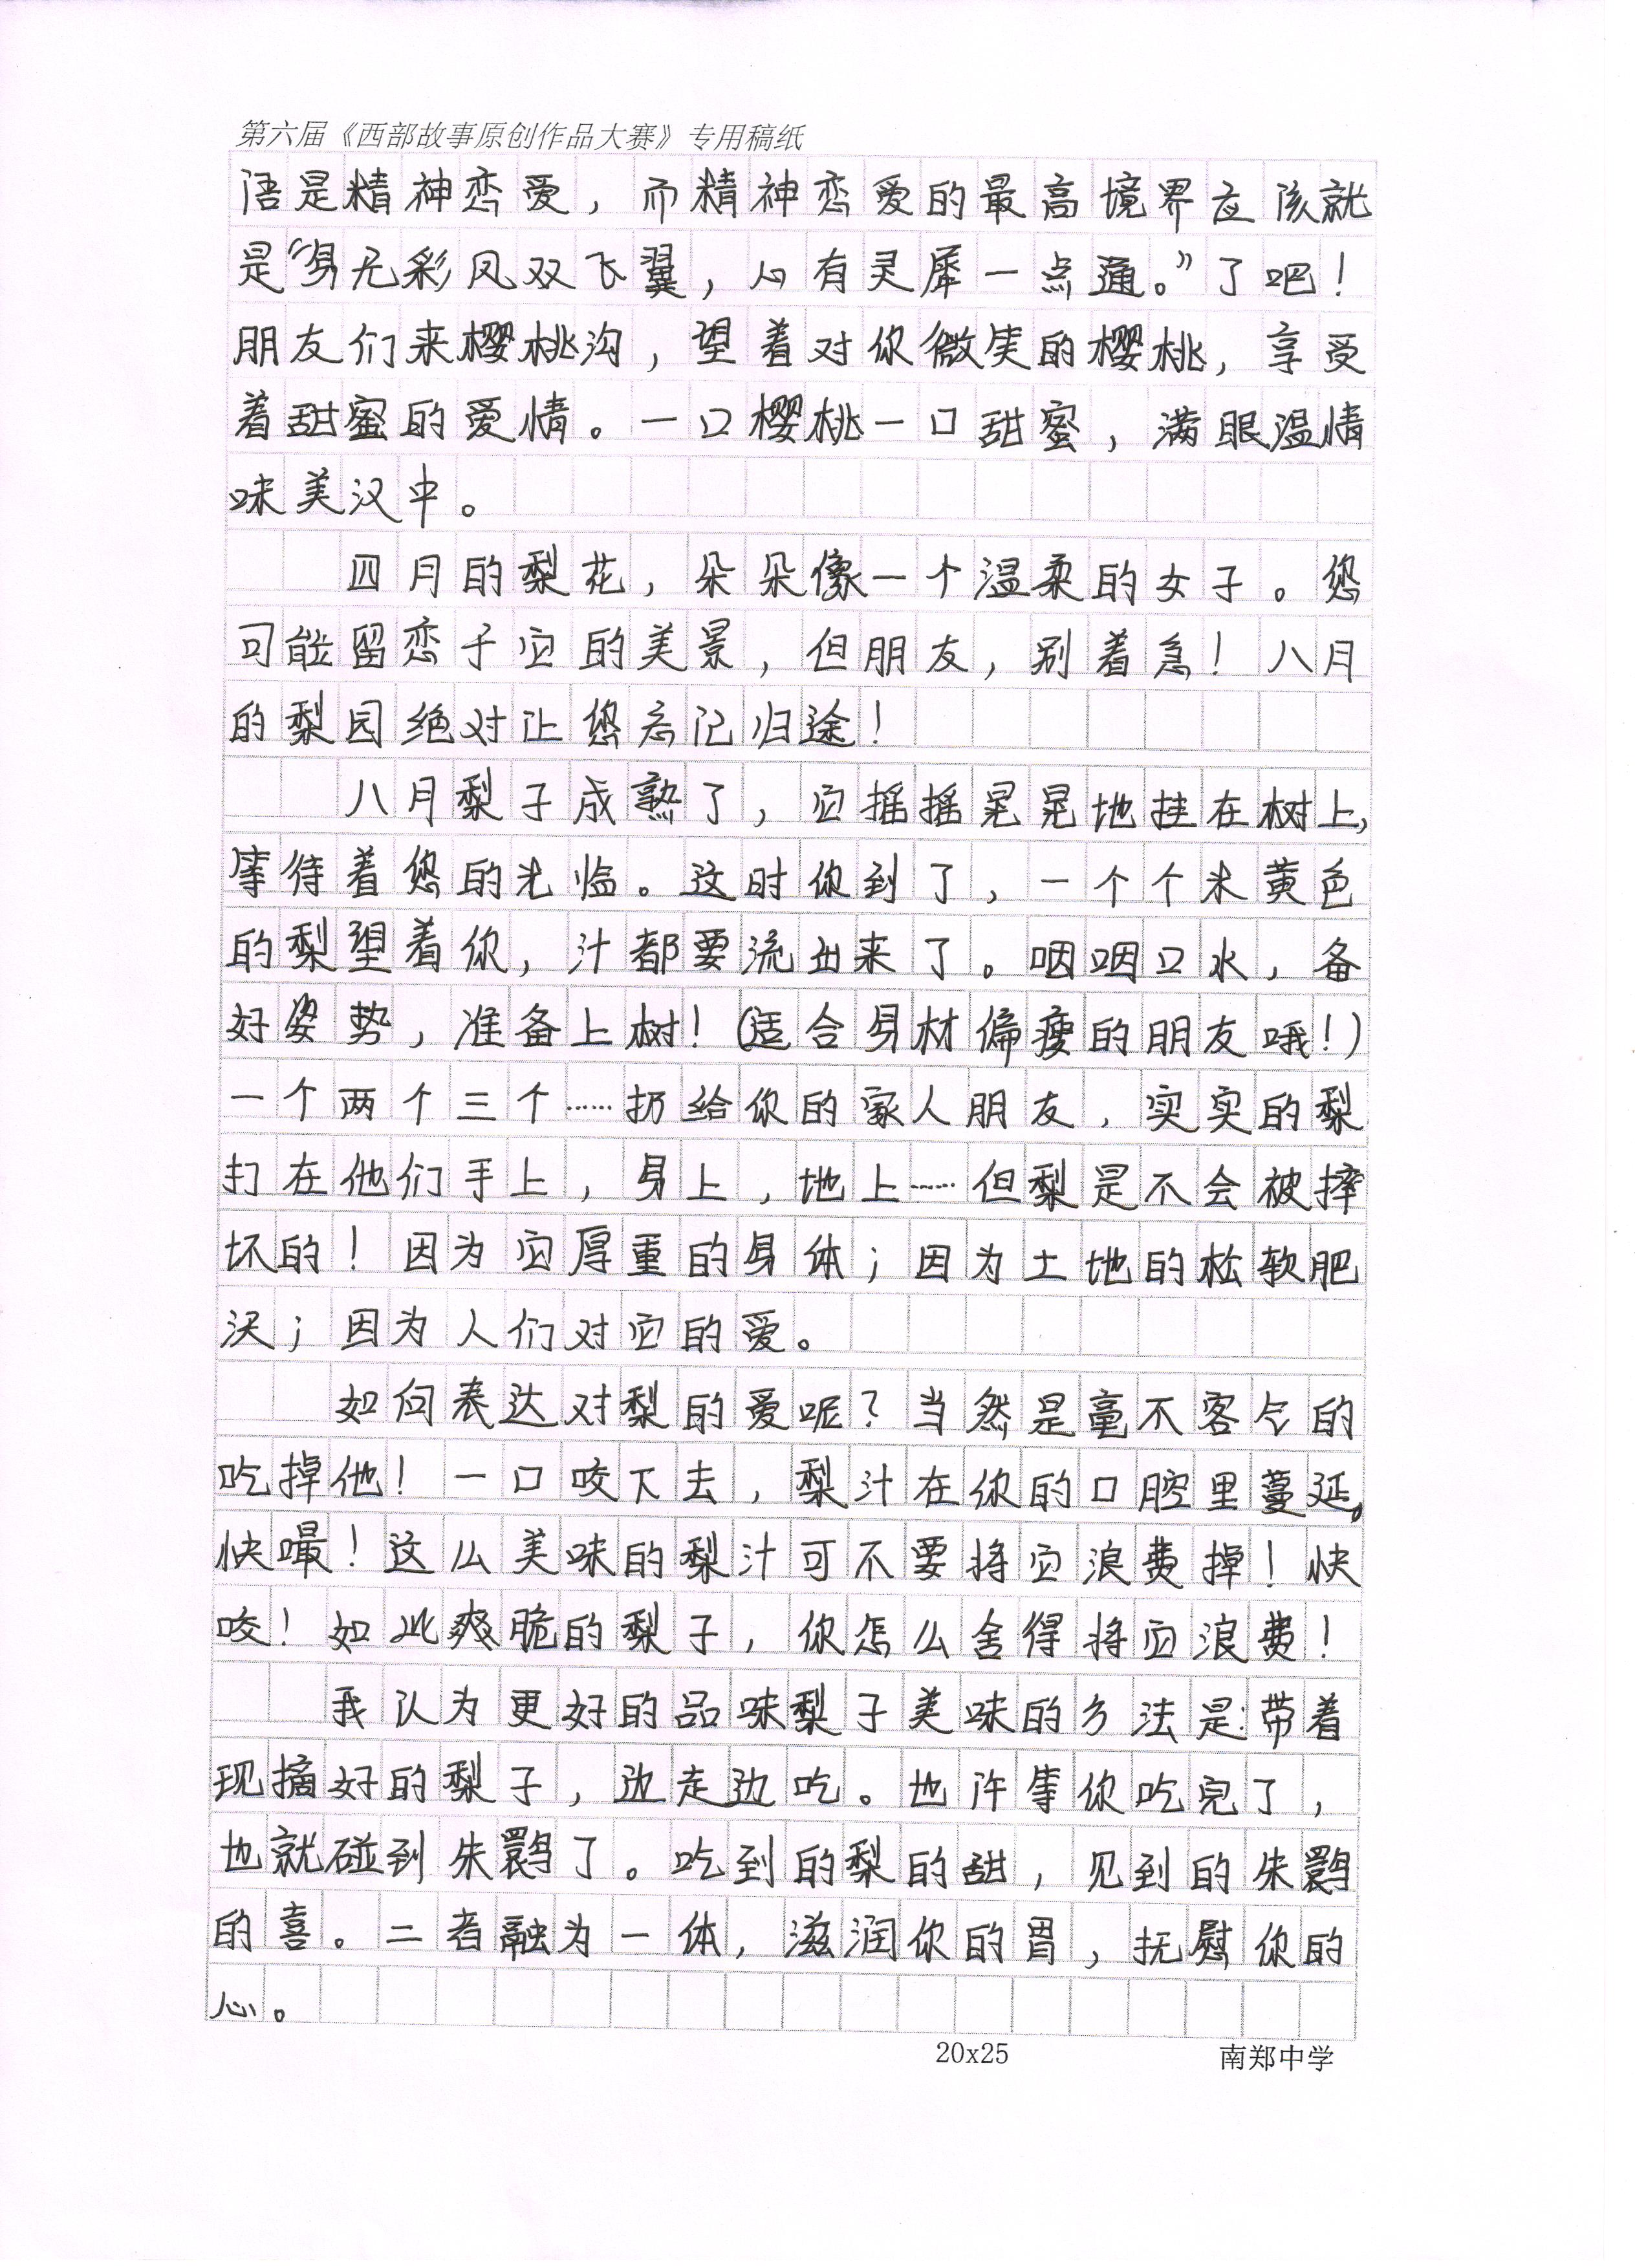 第六届《西部故事原创作品大赛》专用稿纸
悟是精神恋爱，而精神恋爱的最高境界应该就
是“身无彩凤双飞翼，心有灵犀一点通。”了吧！
朋友们来樱桃沟，望着对你微笑的樱桃，享受
着甜蜜的爱情。一口樱桃一口甜蜜，满眼温情
味美汉中。
四月的梨花，朵朵像一个温柔的女子。您
可能留恋于它的美景，但朋友，别着急！八月
的梨园绝对让您忘记归途！
八月梨子成熟了，它摇摇晃晃地挂在树上，
等待着您的光临。这时你到了，一个个米黄色
的梨望着你，汁都要流出来了。咽咽口水，备
好姿势，准备上树！（适合身材偏瘦的朋友哦！）
一个两个三个……扔给你的家人朋友，实实的梨
打在他们手上，身上，地上……但梨是不会被摔
坏的！因为它厚重的身体；因为土地的松软肥
沃；因为人们对它的爱。
如何表达对梨的爱呢？当然是毫不客气的
吃掉他！一口咬下去，梨汁在你的口腔里蔓延。
快嘬！这么美味的梨汁可不要将它浪费掉！快
咬！如此爽脆的梨子，你怎么舍得将它浪费！
我认为更好的品味梨子美味的方法是：带着
现摘好的梨子，边走边吃。也许等你吃完了，
也就碰到朱鹮了。吃到的梨的甜，见到的朱鹮
的喜。二者融为一体，滋润你的胃，抚慰你的
心。
20x25 南郑中学